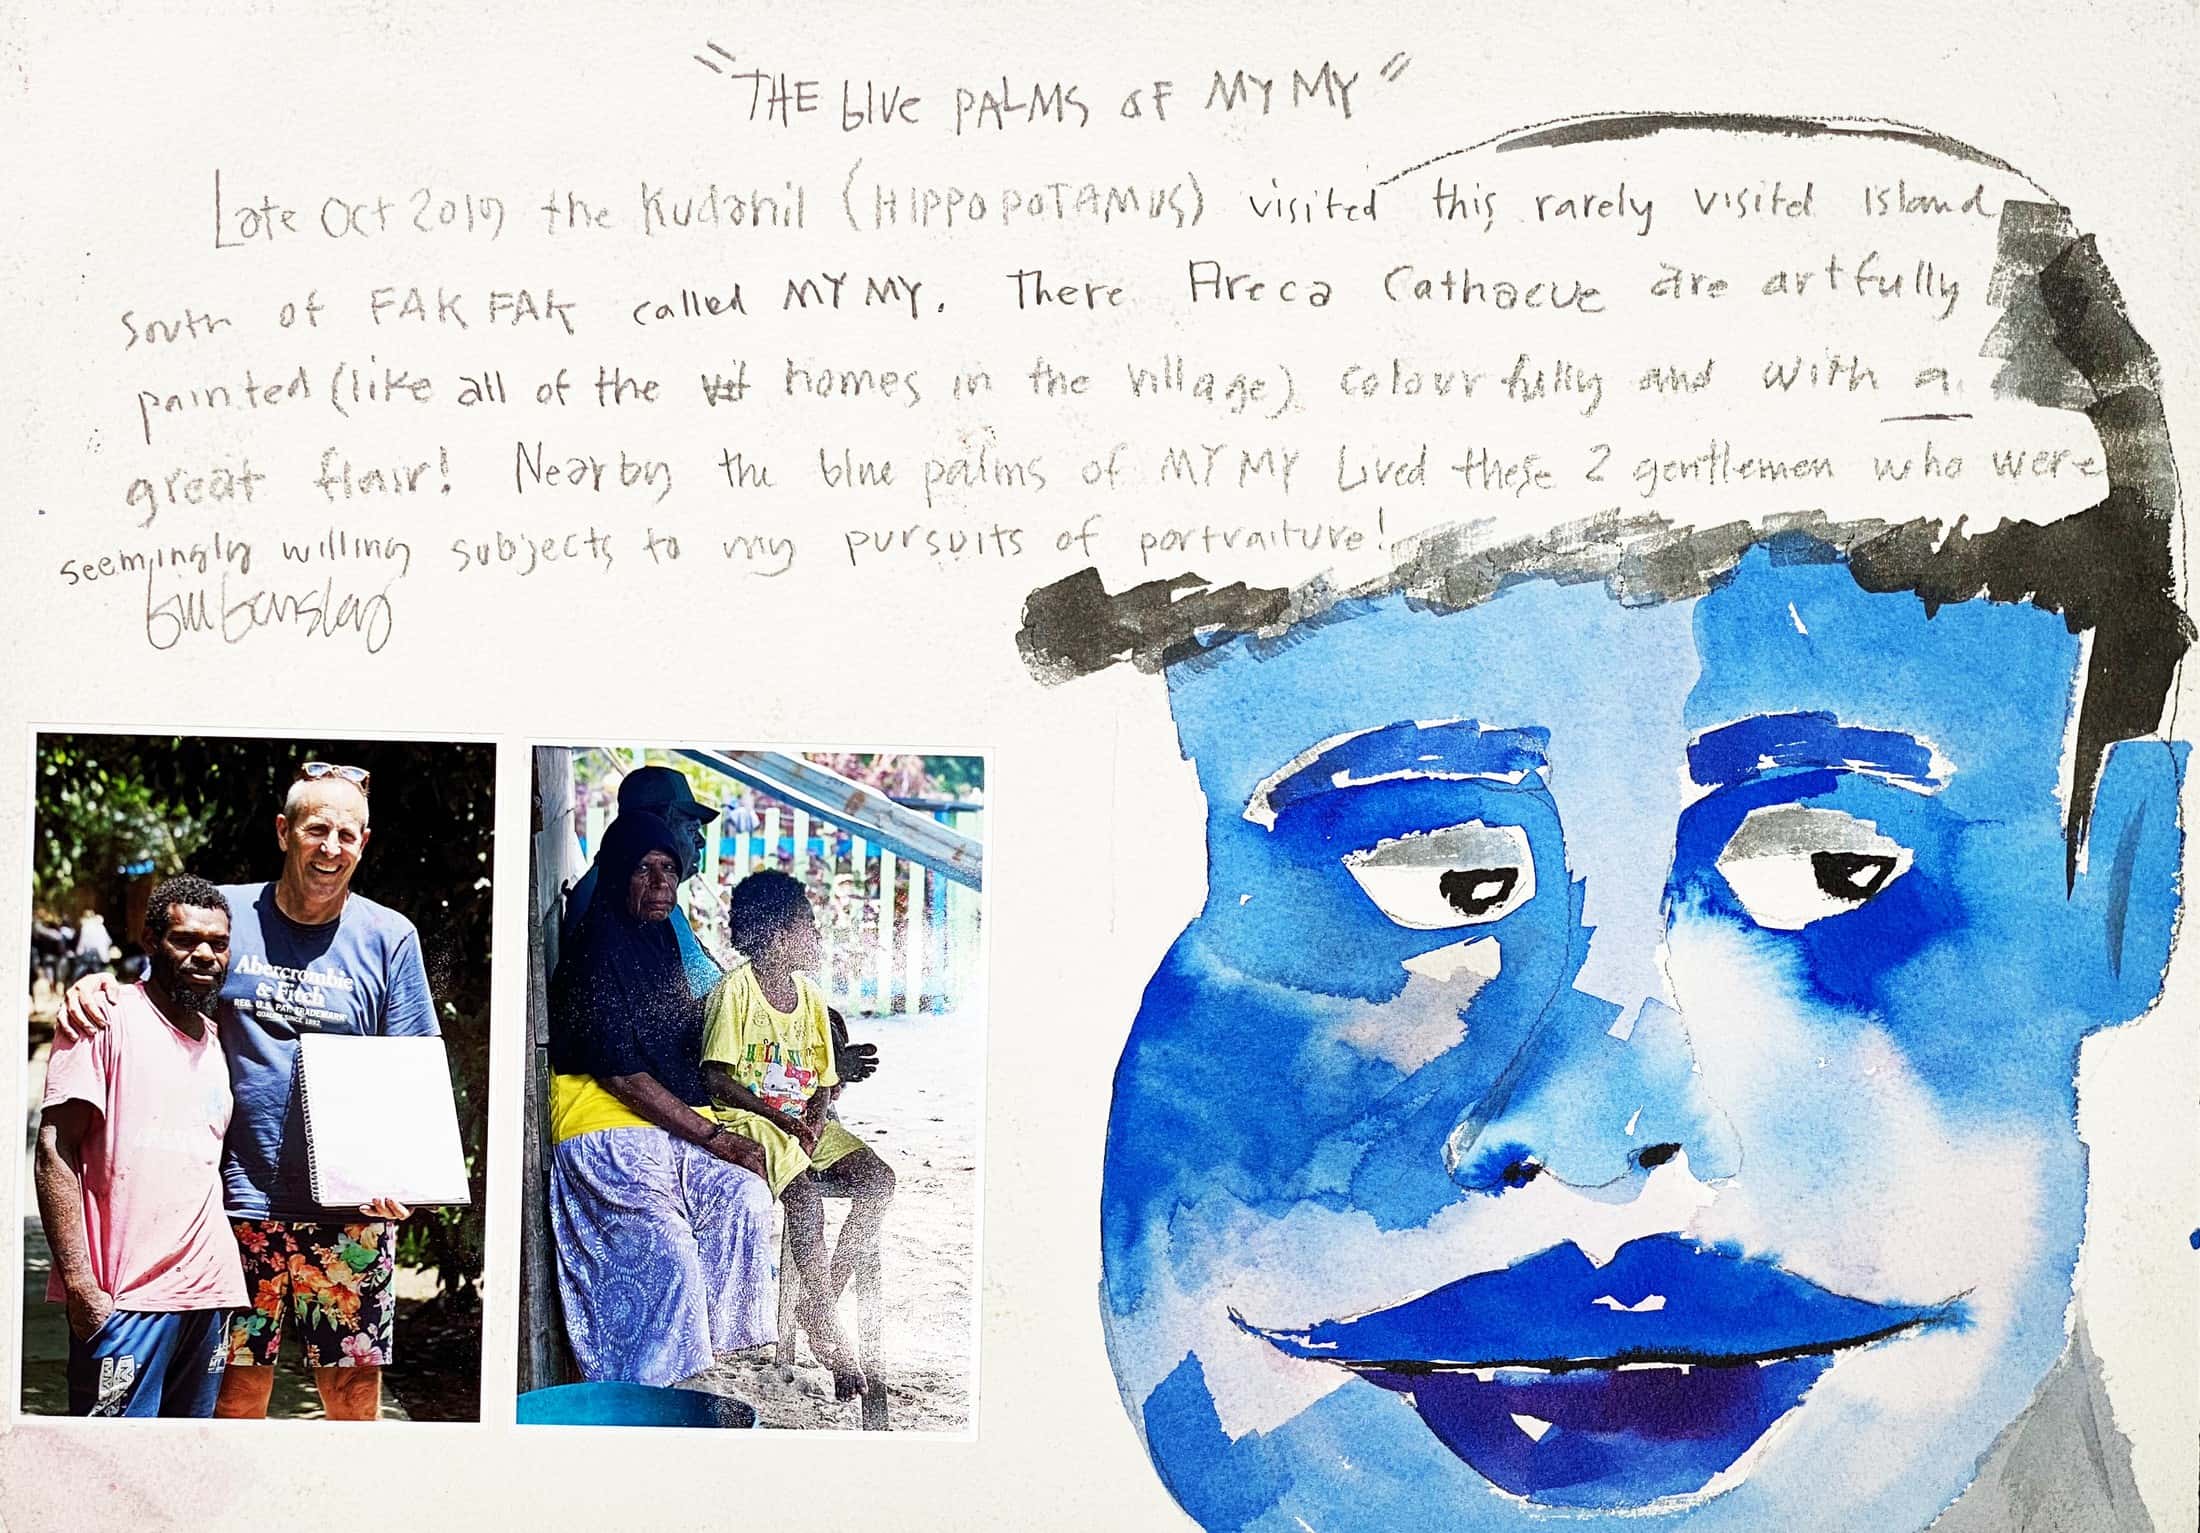 "THE blue PALMS OF MY MY"
Late Oct 2019 the Kudanil (HIPPOPOTAMUS) visited this rarely visited Island
South of FAK FAK called MY MY. There Areca Cathaecue are artfully
painted (like all of the homes in the village) colourfully and with a
great flair! Nearby the blue palms of MY MY Lived these 2 gentlemen who were
seemingly willing subjects to my pursuits of portraiture!
Bill Bensley
Abercrombie
& Fitch
REG. U.S. PAT. TRADEMARK
SINCE 1892
HELLO KI